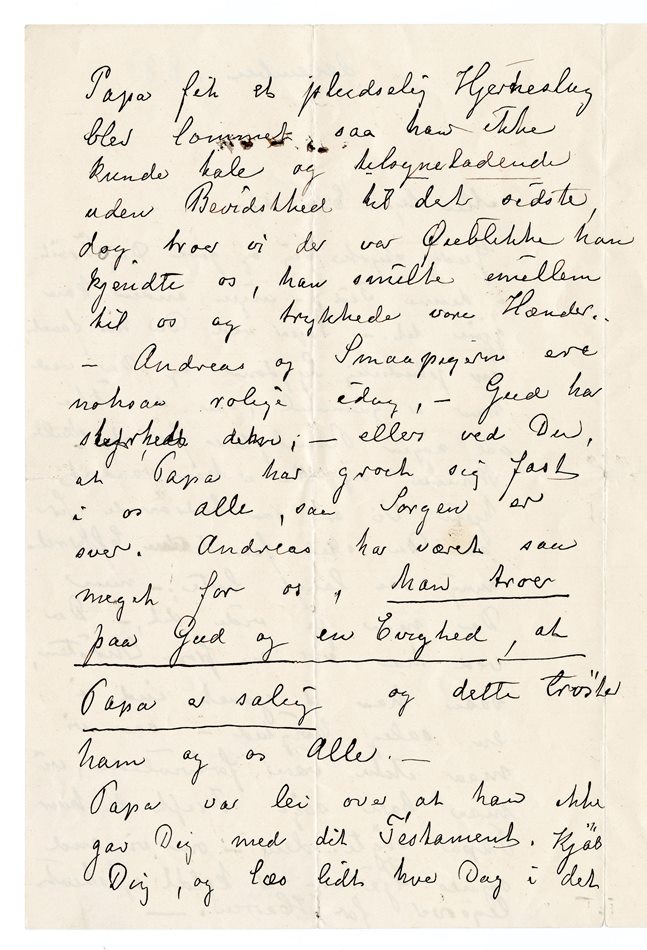 Papa fik et pludselig Hjerneslag
blev lammet, saa han ikke
kunde tale og tilsyneladende
uden Bevidsthed til det sidste,
dog troer vi der var Øieblikke han
kjendte os, han smilte imellem
til os og trykkede vore Hænder.
– Andreas og Smaapigerne ere
noksaa rolige idag, – Gud har
styrket dem; – ellers ved Du,
at Papa har groet sig fast
i os alle, saa Sorgen er
svær. Andreas har været saa
meget for os, han troer
paa Gud og en Evighed, at
Papa er salig og dette trøster
ham og os Alle. –
Papa var lei over at han ikke
gav Dig med dit Testament. Kjøb
Dig, og læs lidt hve Dag i det